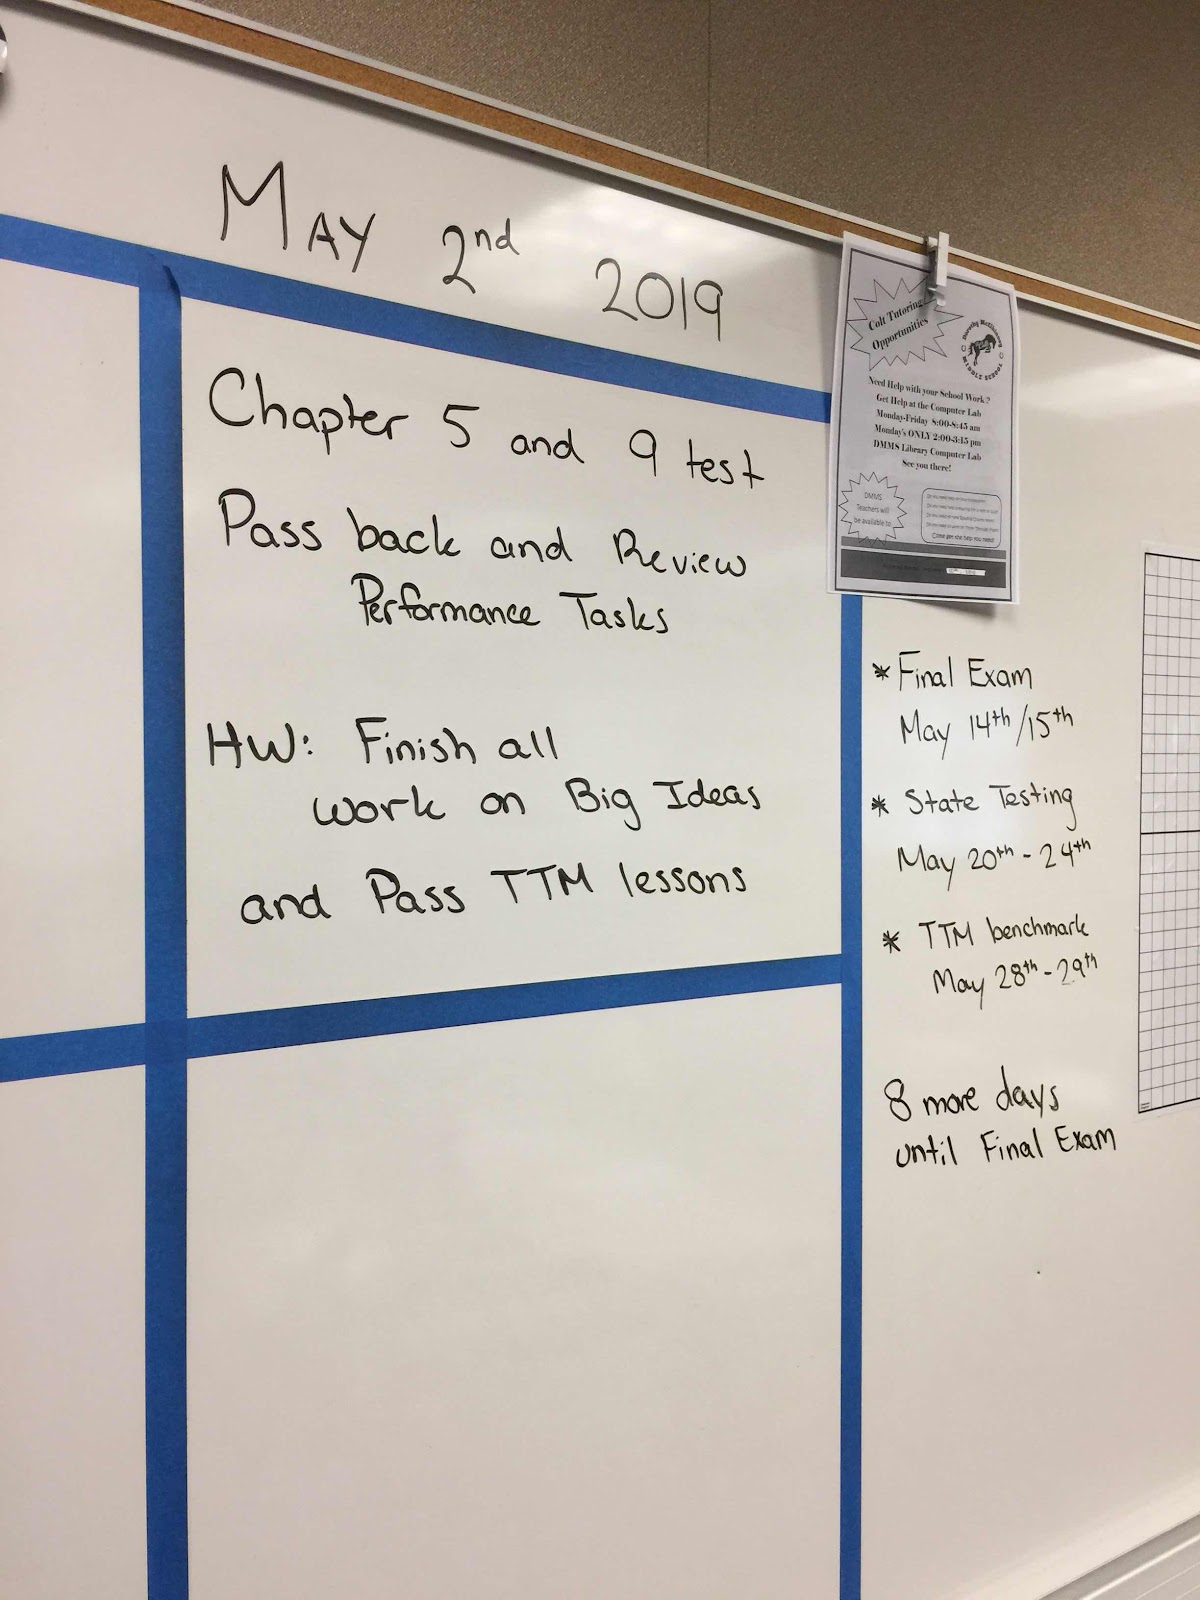 May 2nd 2019
Chapter 5 and 9 test
Pass back and Review
Performance Tasks
HW: Finish all
work on Big Ideas
and Pass TTM lessons
Colt Tutoring
Opportunities
MIDDLE SCHOOL
Need Help with your School Work ?
Get Help at the Computer Lab
Monday-Friday 8:00-8:45 am
Monday's ONLY 2:00-3:15 pm
DMMS Library Computer Lab
See you there!
DMMS
Teachers will
be available to:
Come get the help you need!
* Final Exam
May 14th/15th
* State Testing
May 20th - 24th
* TTM benchmark
May 28th - 29th
8 more days
until Final Exam